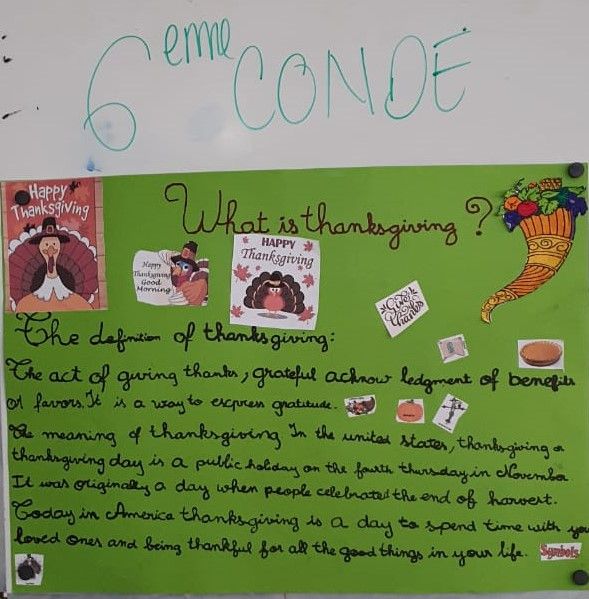 6eme CONDE
Happy
Thanksgiving
What is thanksgiving ?
Happy
Thanksgiving
Good
Morning
HAPPY
Thanksgiving
Give
Thanks
The definition of thanksgiving:
The act of giving thanks, grateful acknow ledgment of benefits
or favors. It is a way to express gratitude.
The meaning of thanksgiving In the united states, thanksgiving or
thanksgiving day is a public holiday on the fourth thursday in November.
It was originally a day when people celebrated the end of harvest.
Today in America thanksgiving is a day to spend time with you
loved ones and being thankful for all the good things in your life. Symbols